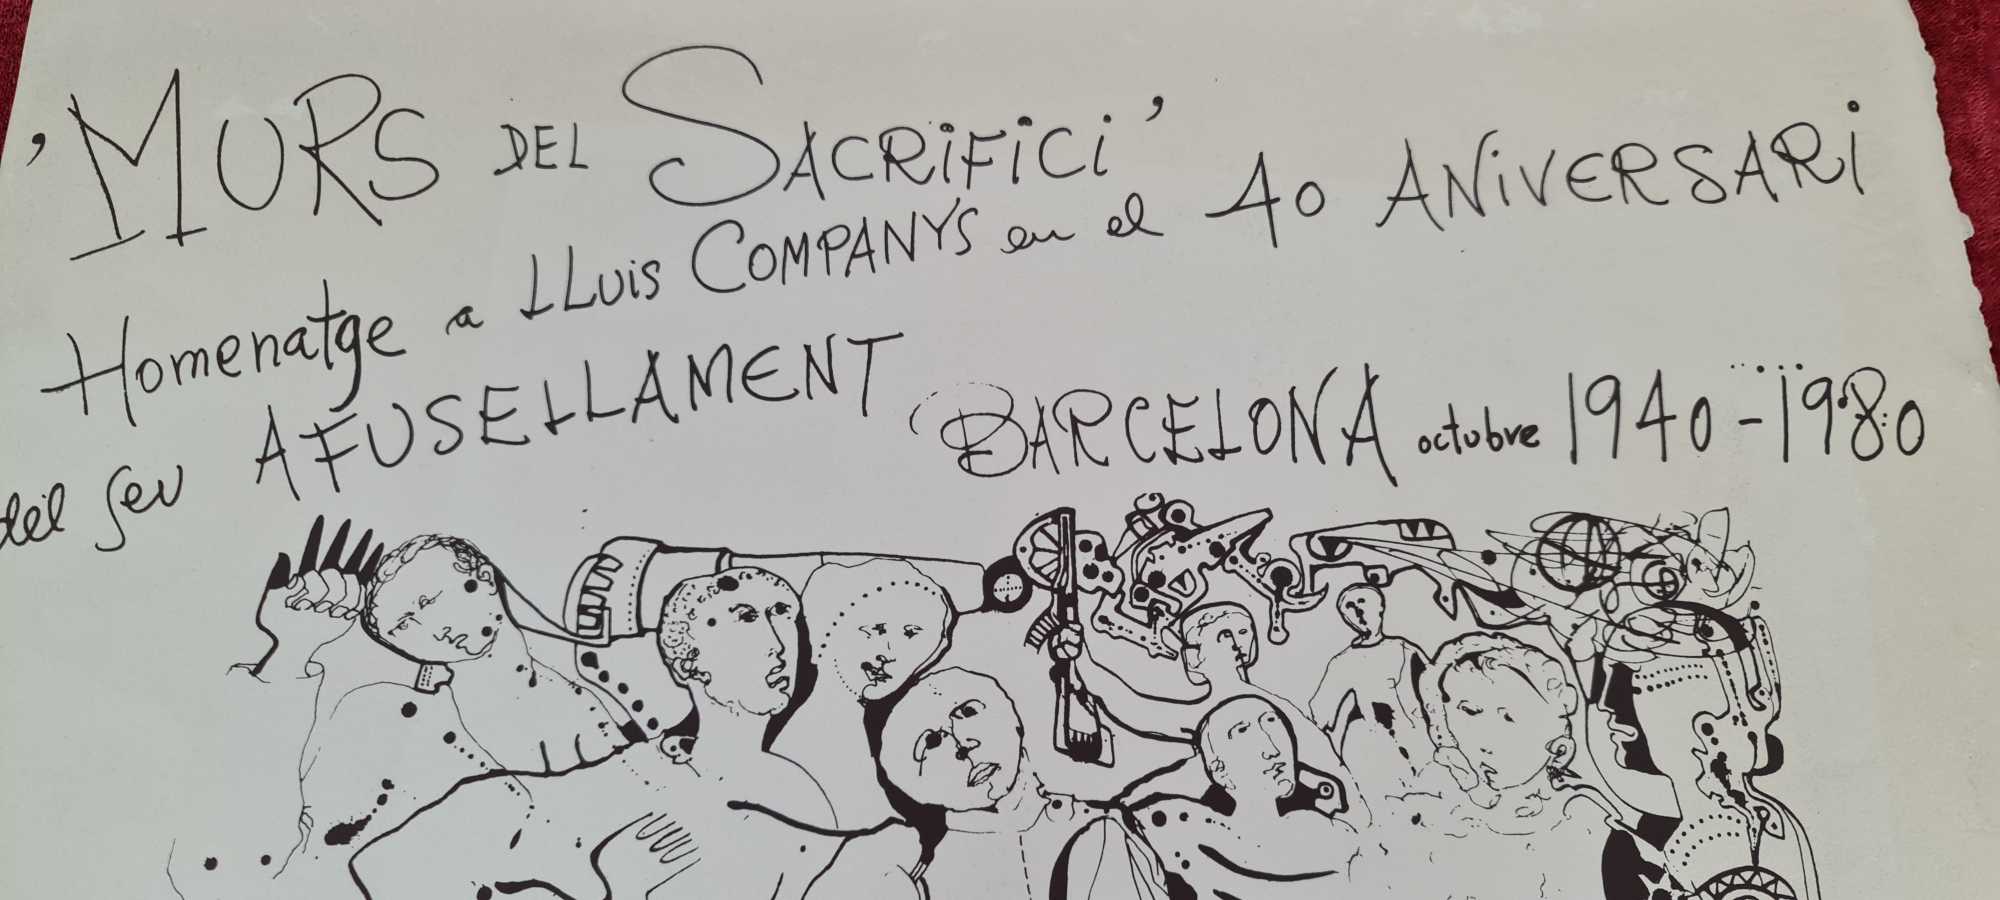 'MURS DEL SACRIFICI'
Homenatge a LLuis COMPANYS en el 40 ANIVERSARI
del seu AFUSELLAMENT BARCELONA octubre 1940-1980